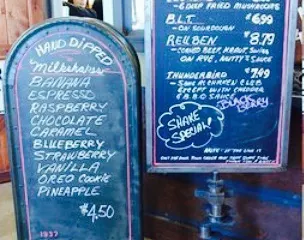 HAND DIPPED
Milkshakes
BANANA
ESPRESSO
RASPBERRY
CHOCOLATE
CARAMEL
BLUEBERRY
STRAWBERRY
VANILLA
OREO COOKIE
PINEAPPLE
$4.50
1937
6 DEEP FRIED MUSHROOMS
B.L.T. $6.99
- ON SOURDOUGH
REUBEN $8.79
- CORNED BEEF, KRAUT, SWISS
ON RYE,
THUNDERBIRD $7.49
SAME AS CHICKEN CLUB
EXCEPT WITH CHEDDAR
& B.B.Q SAUCE
BLACKBERRY
SHAKE
SPECIAL!